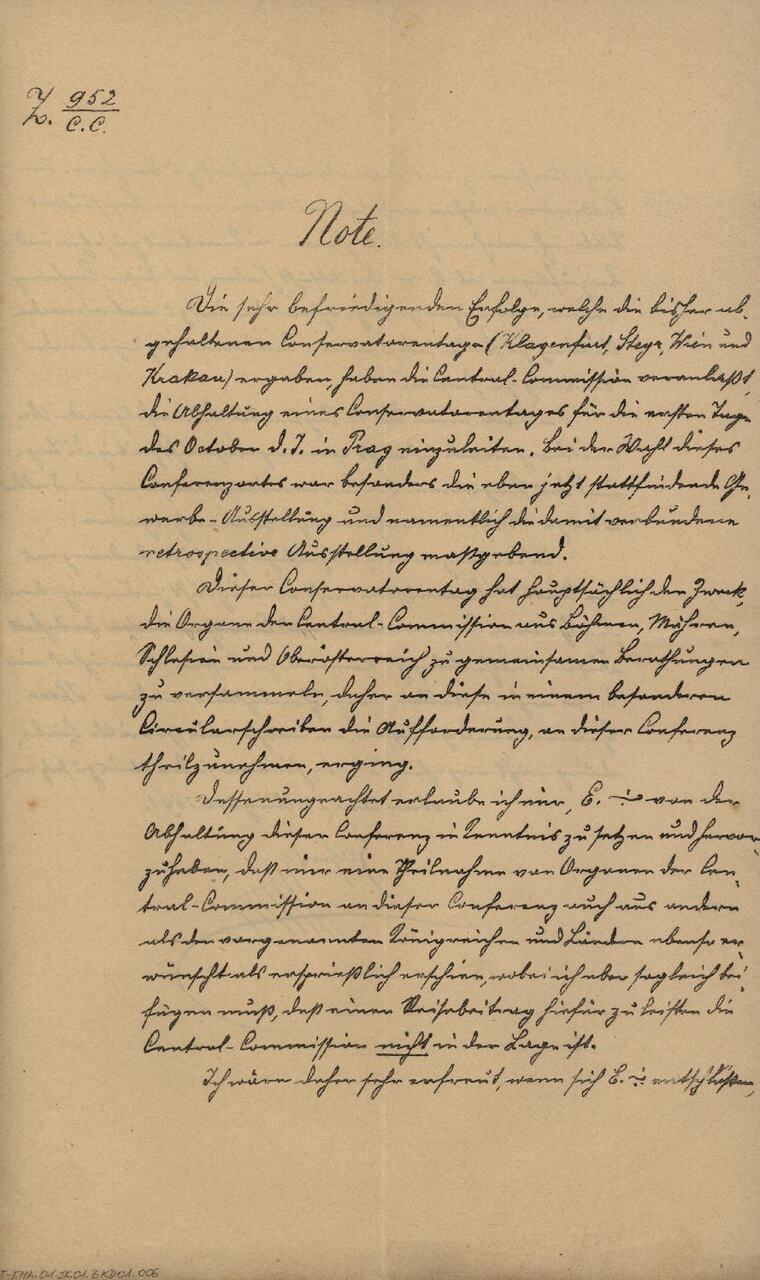 Z. 952
C.C.
Note.
Die sehr befriedigenden Erfolge, welche die bisher ab-
gehaltenen Conservatorentage (Klagenfurt, Steyr, Wien und
Krakau) ergaben, haben die Central-Commission veranlaßt,
die Abhaltung eines Conservatorentages für die ersten Tage
des October d. J. in Prag einzuleiten. Bei der Wahl dieses
Conferenzortes war besonders die eben jetzt stattfindende Ge-
werbe-Ausstellung und namentlich die damit verbundene
retrospective Ausstellung maßgebend.
Dieser Conservatorentag hat hauptsächlich den Zweck,
die Organe der Central-Commission aus Böhmen, Mähren,
Schlesien und Oberösterreich zu gemeinsamen Berathungen
zu versammeln, daher an diese in einem besonderen
Circularschreiben die Aufforderung, an dieser Conferenz
theilzunehmen, erging.
Dessenungeachtet erlaube ich mir, E. von der
Abhaltung dieser Conferenz in Kenntnis zu setzen und hervor-
zuheben, daß mir eine Theilnahme von Organen der Cen-
tral-Commission an dieser Conferenz auch aus andern
als den vorgenannten Königreichen und Ländern ebenso er-
wünscht als ersprießlich erschien, wobei ich aber sogleich bei-
fügen muß, daß einen Reisebeitrag hiefür zu leisten die
Central-Commission nicht in der Lage ist.
Ich wäre daher sehr erfreut, wenn sich E. entschließen,